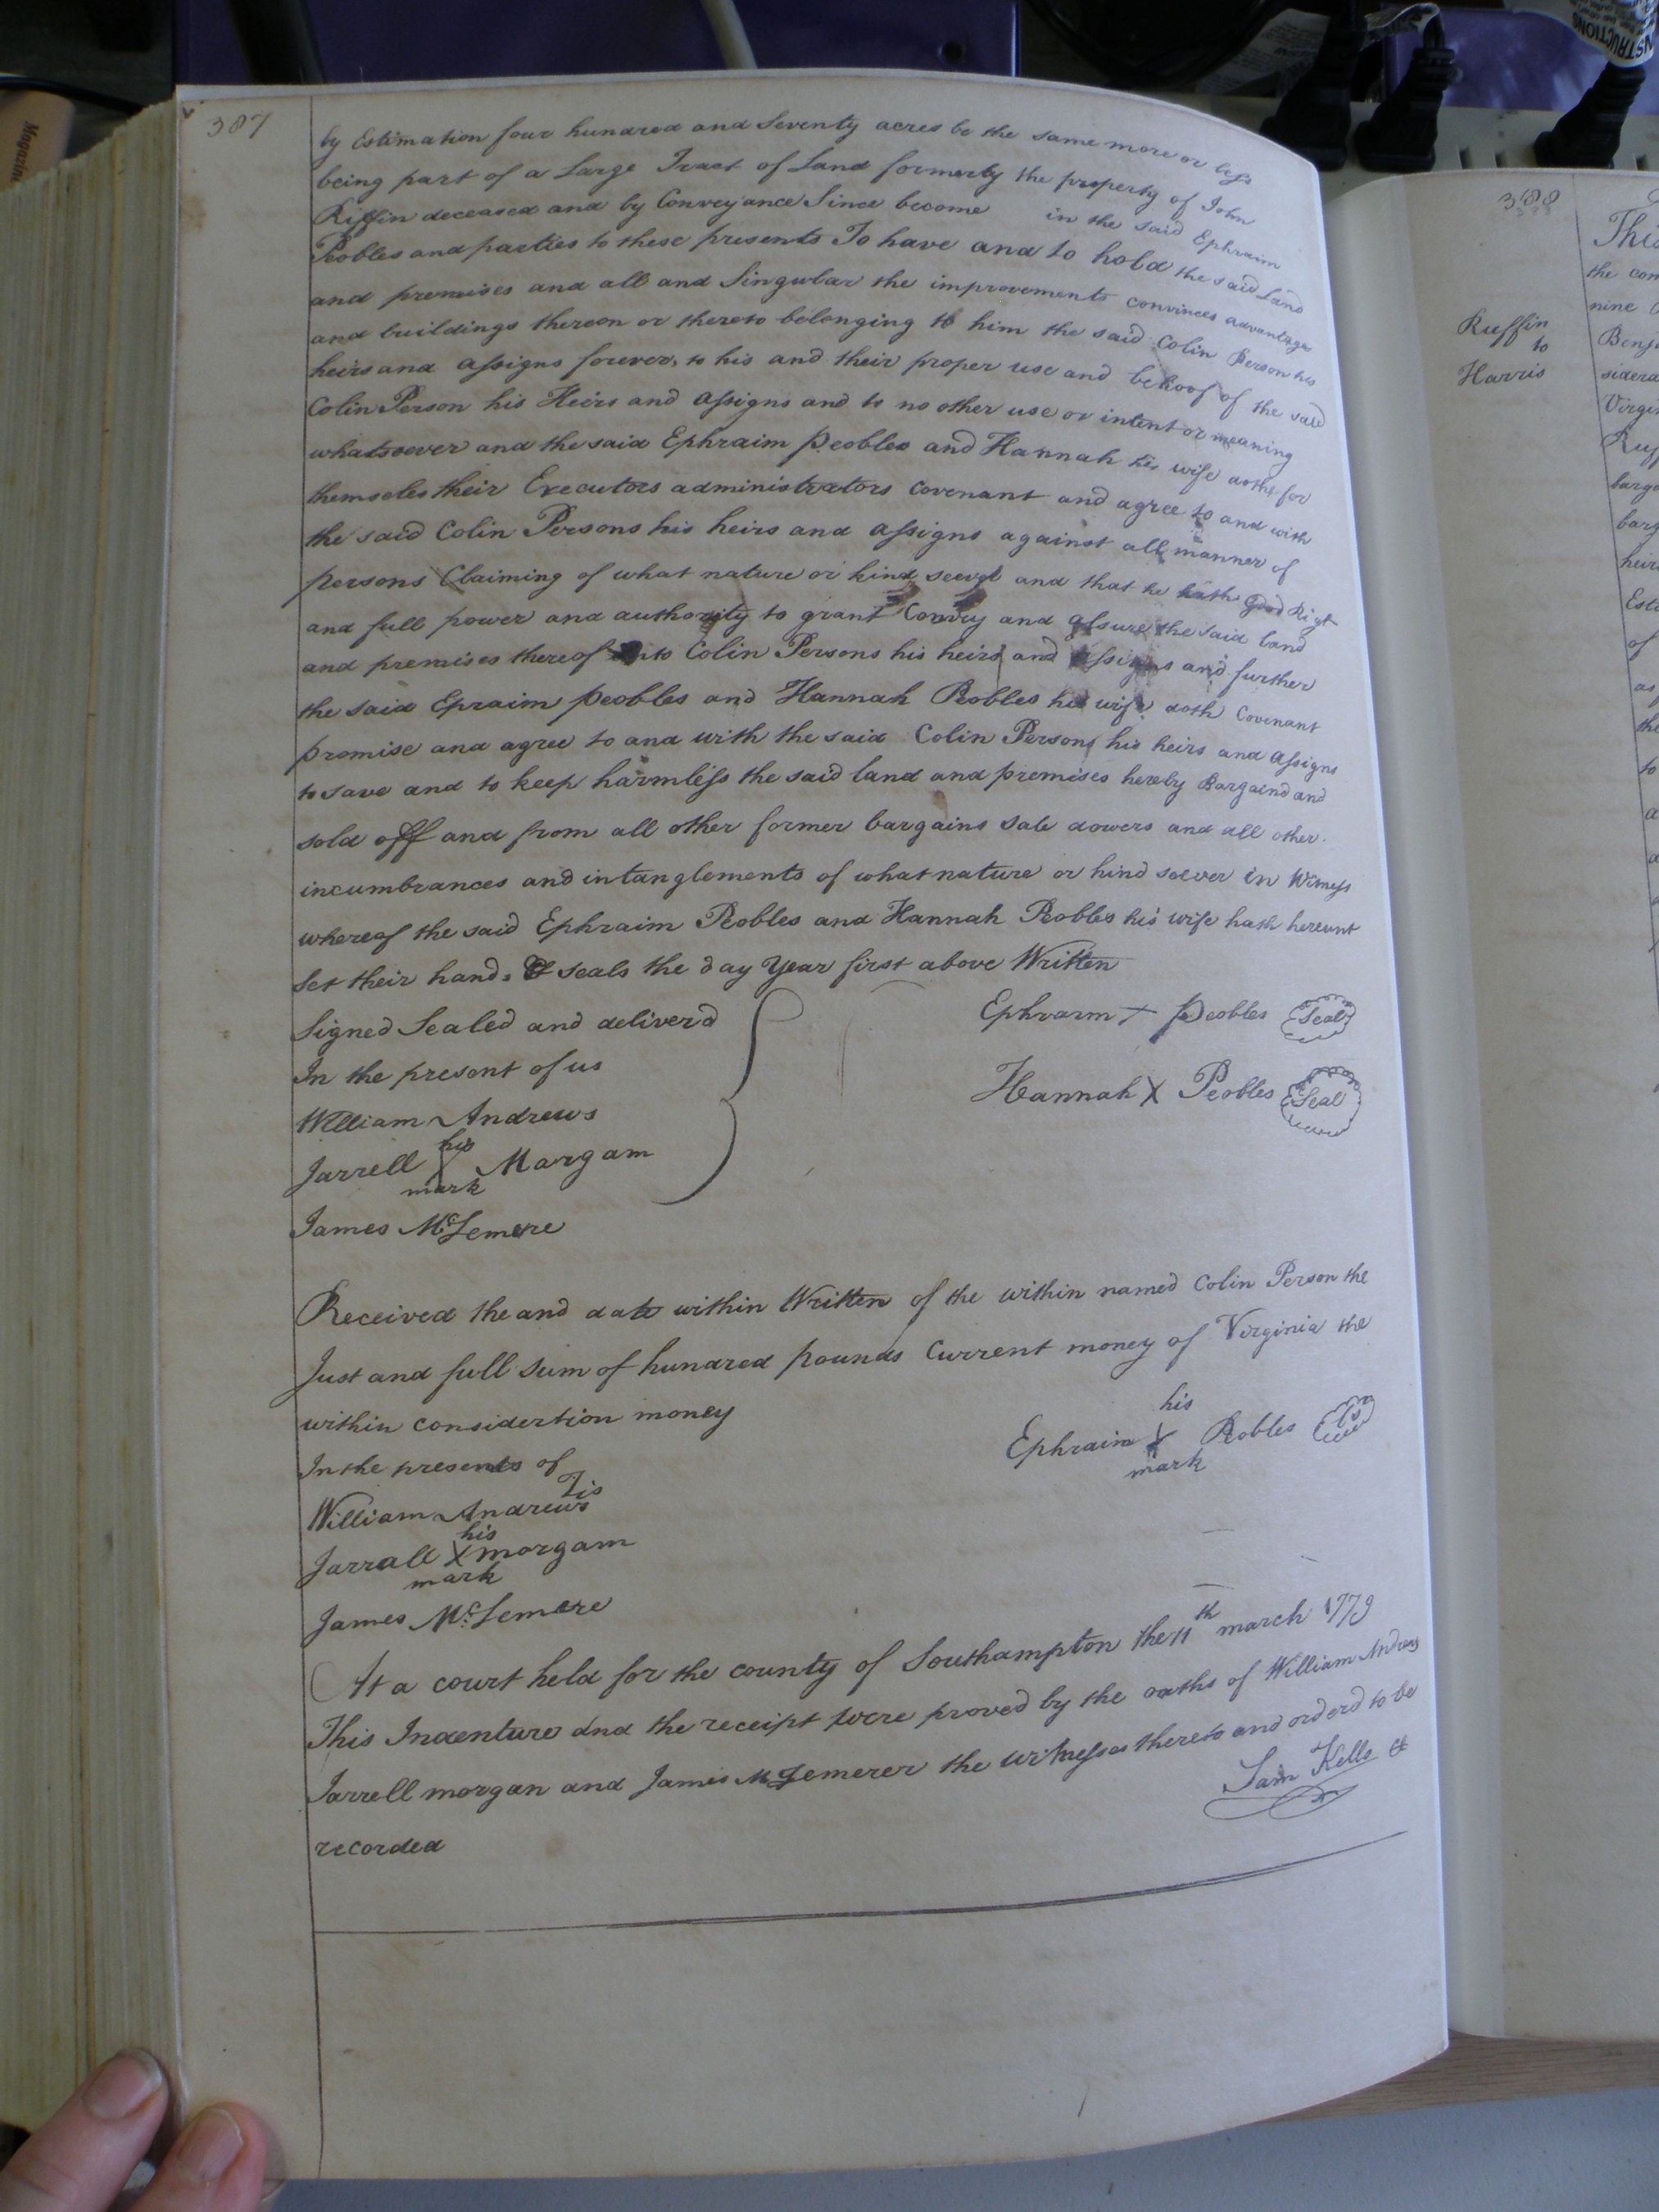 387
by Estimation four hundred and Seventy acres be the same more or less
being part of a Large Tract of Land formerly the property of John
Riffin deceased and by Conveyance Since become in the said Ephraim
Peobles and parties to these presents To have and to hold the said Land
and premises and all and Singular the improvements convinces advantages
and buildings thereon or thereto belonging to him the said Colin Person his
heirs and assigns forever, to his and their proper use and behoof of the said
Colin Person his Heirs and assigns and to no other use or intent or meaning
whatsoever and the said Ephraim Peobles and Hannah his wife doth for
themseles their Executors administrators Covenant and agree to and with
the said Colin Persons his heirs and assigns against all manner of
persons Claiming of what nature or kind and that he hath good Right
and full power and authority to grant Convey and assure the said land
and premises thereof Colin Persons his heirs and assigns and further
the said Epraim Peobles and Hannah Peobles his wife doth Covenant
promise and agree to and with the said Colin Persons his heirs and assigns
to save and to keep harmless the said land and premises hereby Bargaind and
sold off and from all other former bargains sale dowers and all other
incumbrances and intanglements of what nature or kind soever in Witness
whereof the said Ephraim Peobles and Hannah Peobles his wife hath hereunt
set their hands & seals the day Year first above Written
Signed Sealed and deliverd
In the present of us
William Andrews
his
Jarrell X Morgam
mark
James McLemere
Ephraim + Peobles Seal
Hannah X Peobles Seal
Received the and date within Written of the within named Colin Person the
Just and full Sum of hundred pounds Current money of Virginia the
within considertion money
In the presents of
William Andrews
his
Jarrall X morgam
mark
James McLemere
his
Ephraim X Peobles Ls
mark
At a court held for the county of Southampton the 11th march 1779
This Indenture and the receipt were proved by the oaths of William Andrews
Jarrell morgan and James McLemerer the witnesses thereto and orderd to be
recorded
Sam Kello
388
Ruffin
to
Harris
the com
nine
Benj
sidera
Virgin
Ruf
barga
barg
heir
Esta
of
as
the
to
INSTRUCTIONS
Magazine